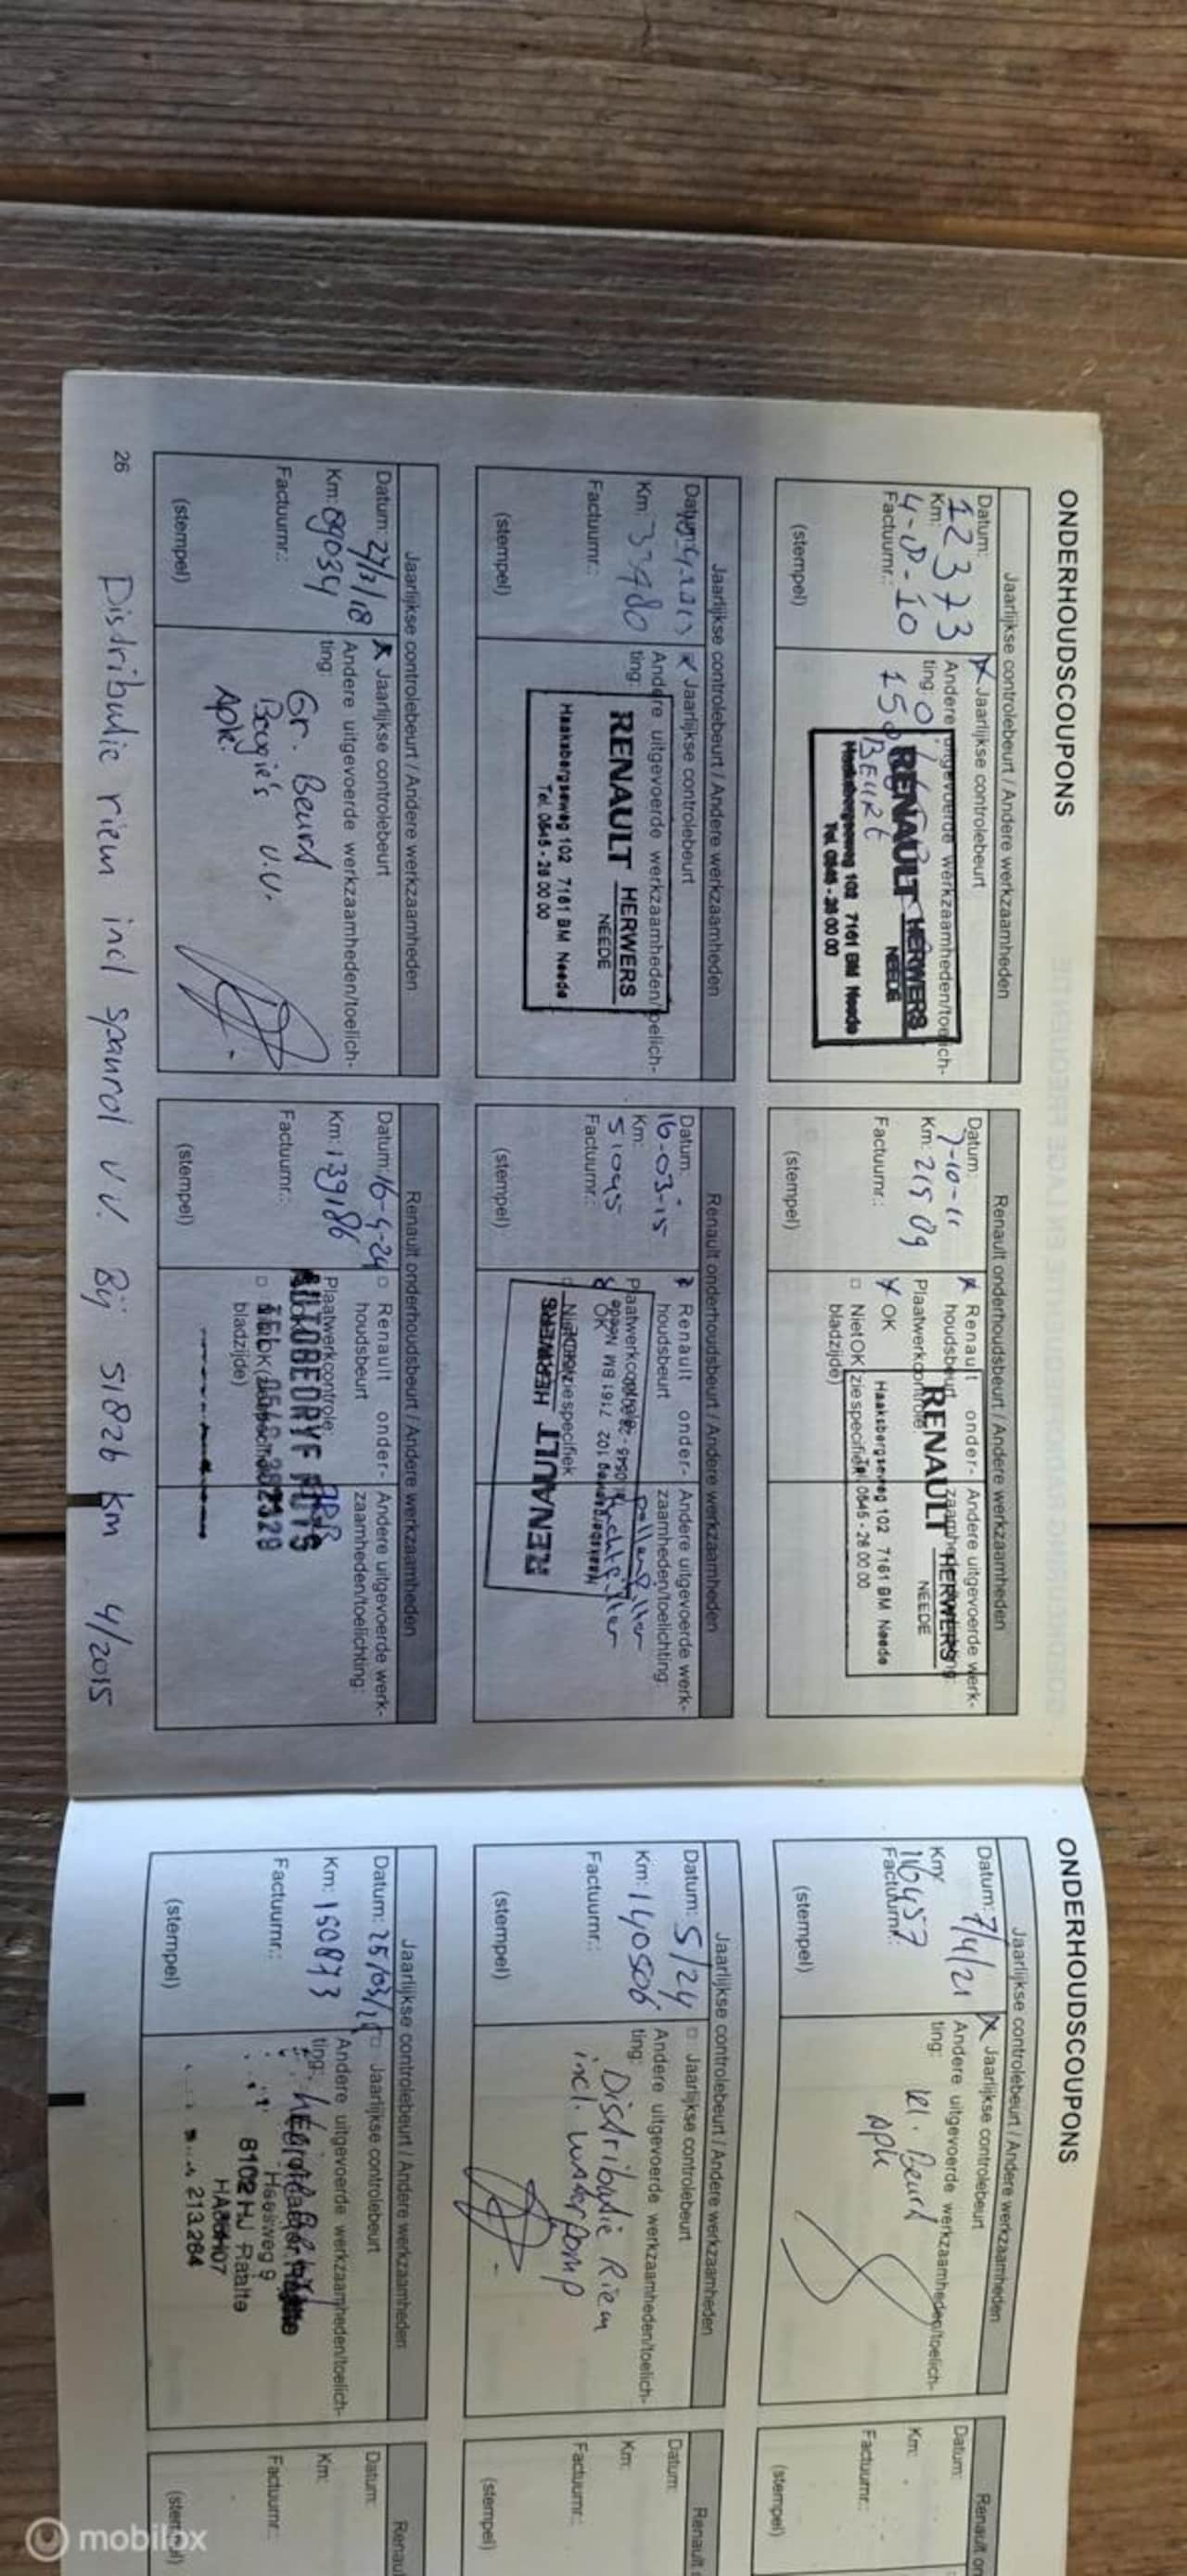 ONDERHOUDSCOUPONS
Jaarlijkse controlebeurt / Andere werkzaamheden
Datum:
12373
Km:
4-8-10
Factuurnr.:
(stempel)
Jaarlijkse controlebeurt
Andere uitgevoerde werkzaamheden/toelich-
ting:
BEURT
RENAULT HERWERS
NEEDE
Haaksbergseweg 102 7161 BM Neede
Tel. 0545 - 28 00 00
Renault onderhoudsbeurt / Andere werkzaamheden
Datum:
7-10-11
Km: 21509
Factuurnr.:
(stempel)
Renault onder-
houdsbeurt
Plaatwerkcontrole:
OK
Niet OK (zie specifiek
bladzijde)
Andere uitgevoerde werk-
zaamheden/toelichting:
RENAULT HERWERS
NEEDE
Haaksbergseweg 102 7161 BM Neede
Tel. 0545 - 28 00 00
Jaarlijkse controlebeurt / Andere werkzaamheden
Km:
Factuurnr.:
(stempel)
Jaarlijkse controlebeurt
Andere uitgevoerde werkzaamheden/toelich-
ting:
RENAULT HERWERS
NEEDE
Haaksbergseweg 102 7161 BM Neede
Tel. 0545 - 28 00 00
Renault onderhoudsbeurt / Andere werkzaamheden
Datum:
16-03-15
Km:
51095
Factuurnr.:
(stempel)
Renault onder-
houdsbeurt
Plaatwerkcontrole:
OK
Andere uitgevoerde werk-
zaamheden/toelichting:
pollenfilter
luchtfilter
RENAULT HERWERS
Jaarlijkse controlebeurt / Andere werkzaamheden
Datum: 27/3/18
Km: 89034
Factuurnr.:
(stempel)
Jaarlijkse controlebeurt
Andere uitgevoerde werkzaamheden/toelich-
ting:
Gr. Beurt
Bougie's v.v.
Apk.
Renault onderhoudsbeurt / Andere werkzaamheden
Datum: 16-4-24
Km: 139186
Factuurnr.:
(stempel)
Renault onder-
houdsbeurt
Plaatwerkcontrole:
bladzijde)
Andere uitgevoerde werk-
zaamheden/toelichting:
AUTOBEDRYF
Distributie riem incl spanrol v.v. Bij 51826 km 4/2015
26
ONDERHOUDSCOUPONS
Jaarlijkse controlebeurt / Andere werkzaamheden
Datum: 7/4/21
Km:
116457
Factuurnr.:
(stempel)
Jaarlijkse controlebeurt
Andere uitgevoerde werkzaamheden/toelich-
ting:
kl. Beurt
Apk
Datum:
Km:
Factuurnr.:
(stempel)
Jaarlijkse controlebeurt / Andere werkzaamheden
Datum: 5/24
Km: 140506
Factuurnr.:
(stempel)
Jaarlijkse controlebeurt
Andere uitgevoerde werkzaamheden/toelich-
ting:
Distributie Riem
incl. waterpomp
Renault
Datum:
Km:
Factuurnr.:
(stempel)
Jaarlijkse controlebeurt / Andere werkzaamheden
Datum: 25/03/
Km: 150873
Factuurnr.:
(stempel)
Jaarlijkse controlebeurt
Andere uitgevoerde werkzaamheden/toelich-
ting:
8102 HJ Raalte
213.284
Datum:
Km:
Factuurnr.:
mobilox